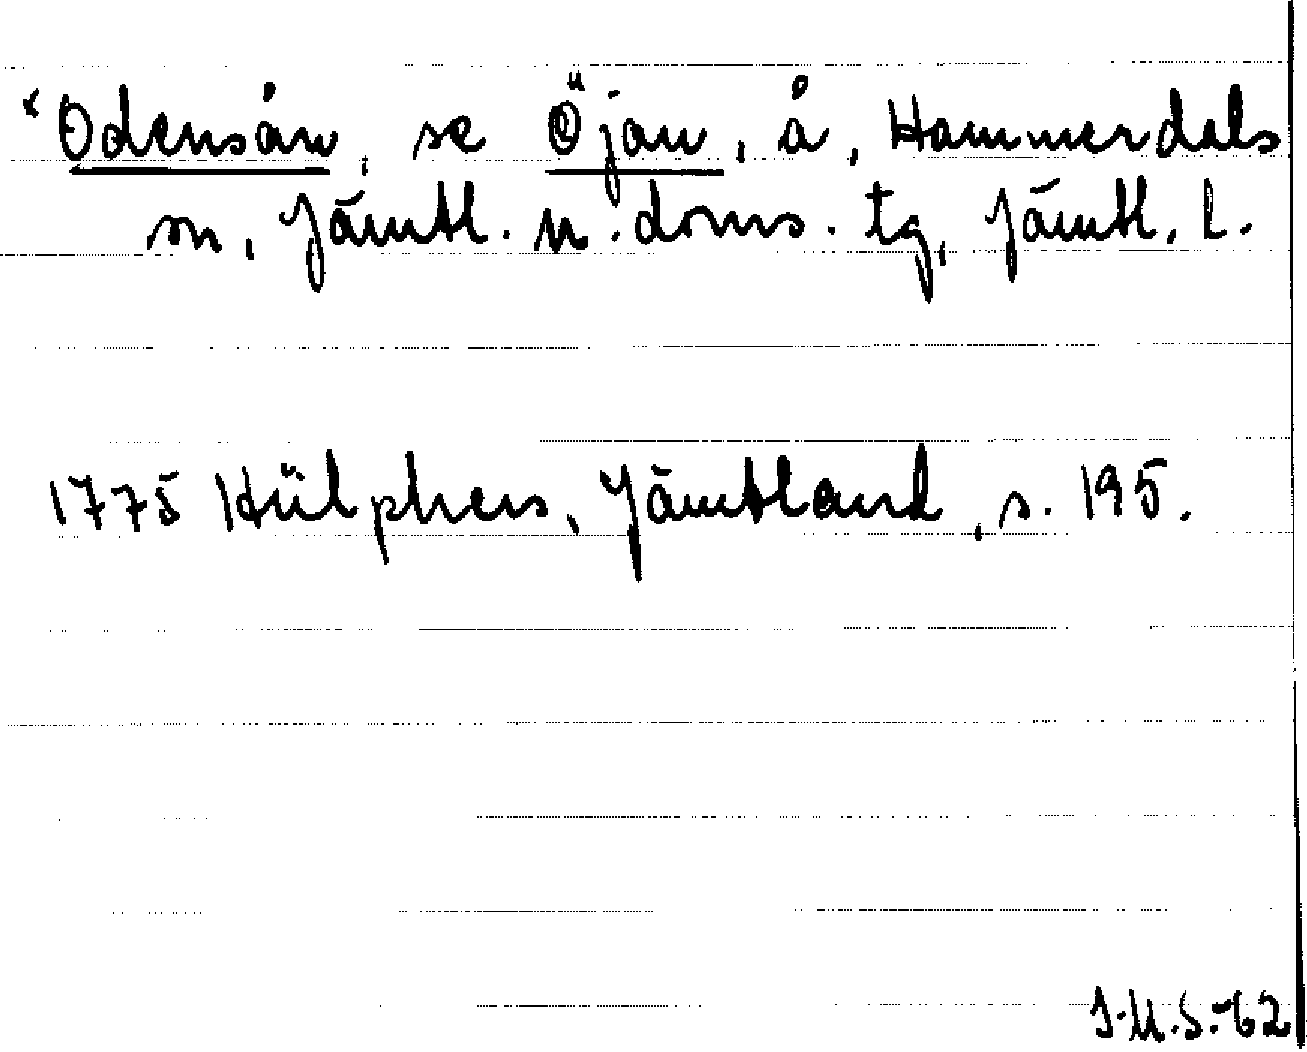 *Odensån, se Öjan, å, Hammerdals
sn, Jämtl. n. doms. tg, Jämtl. L.
1775 Hülphers, Jämtland, s. 195.
I.M.S.-62